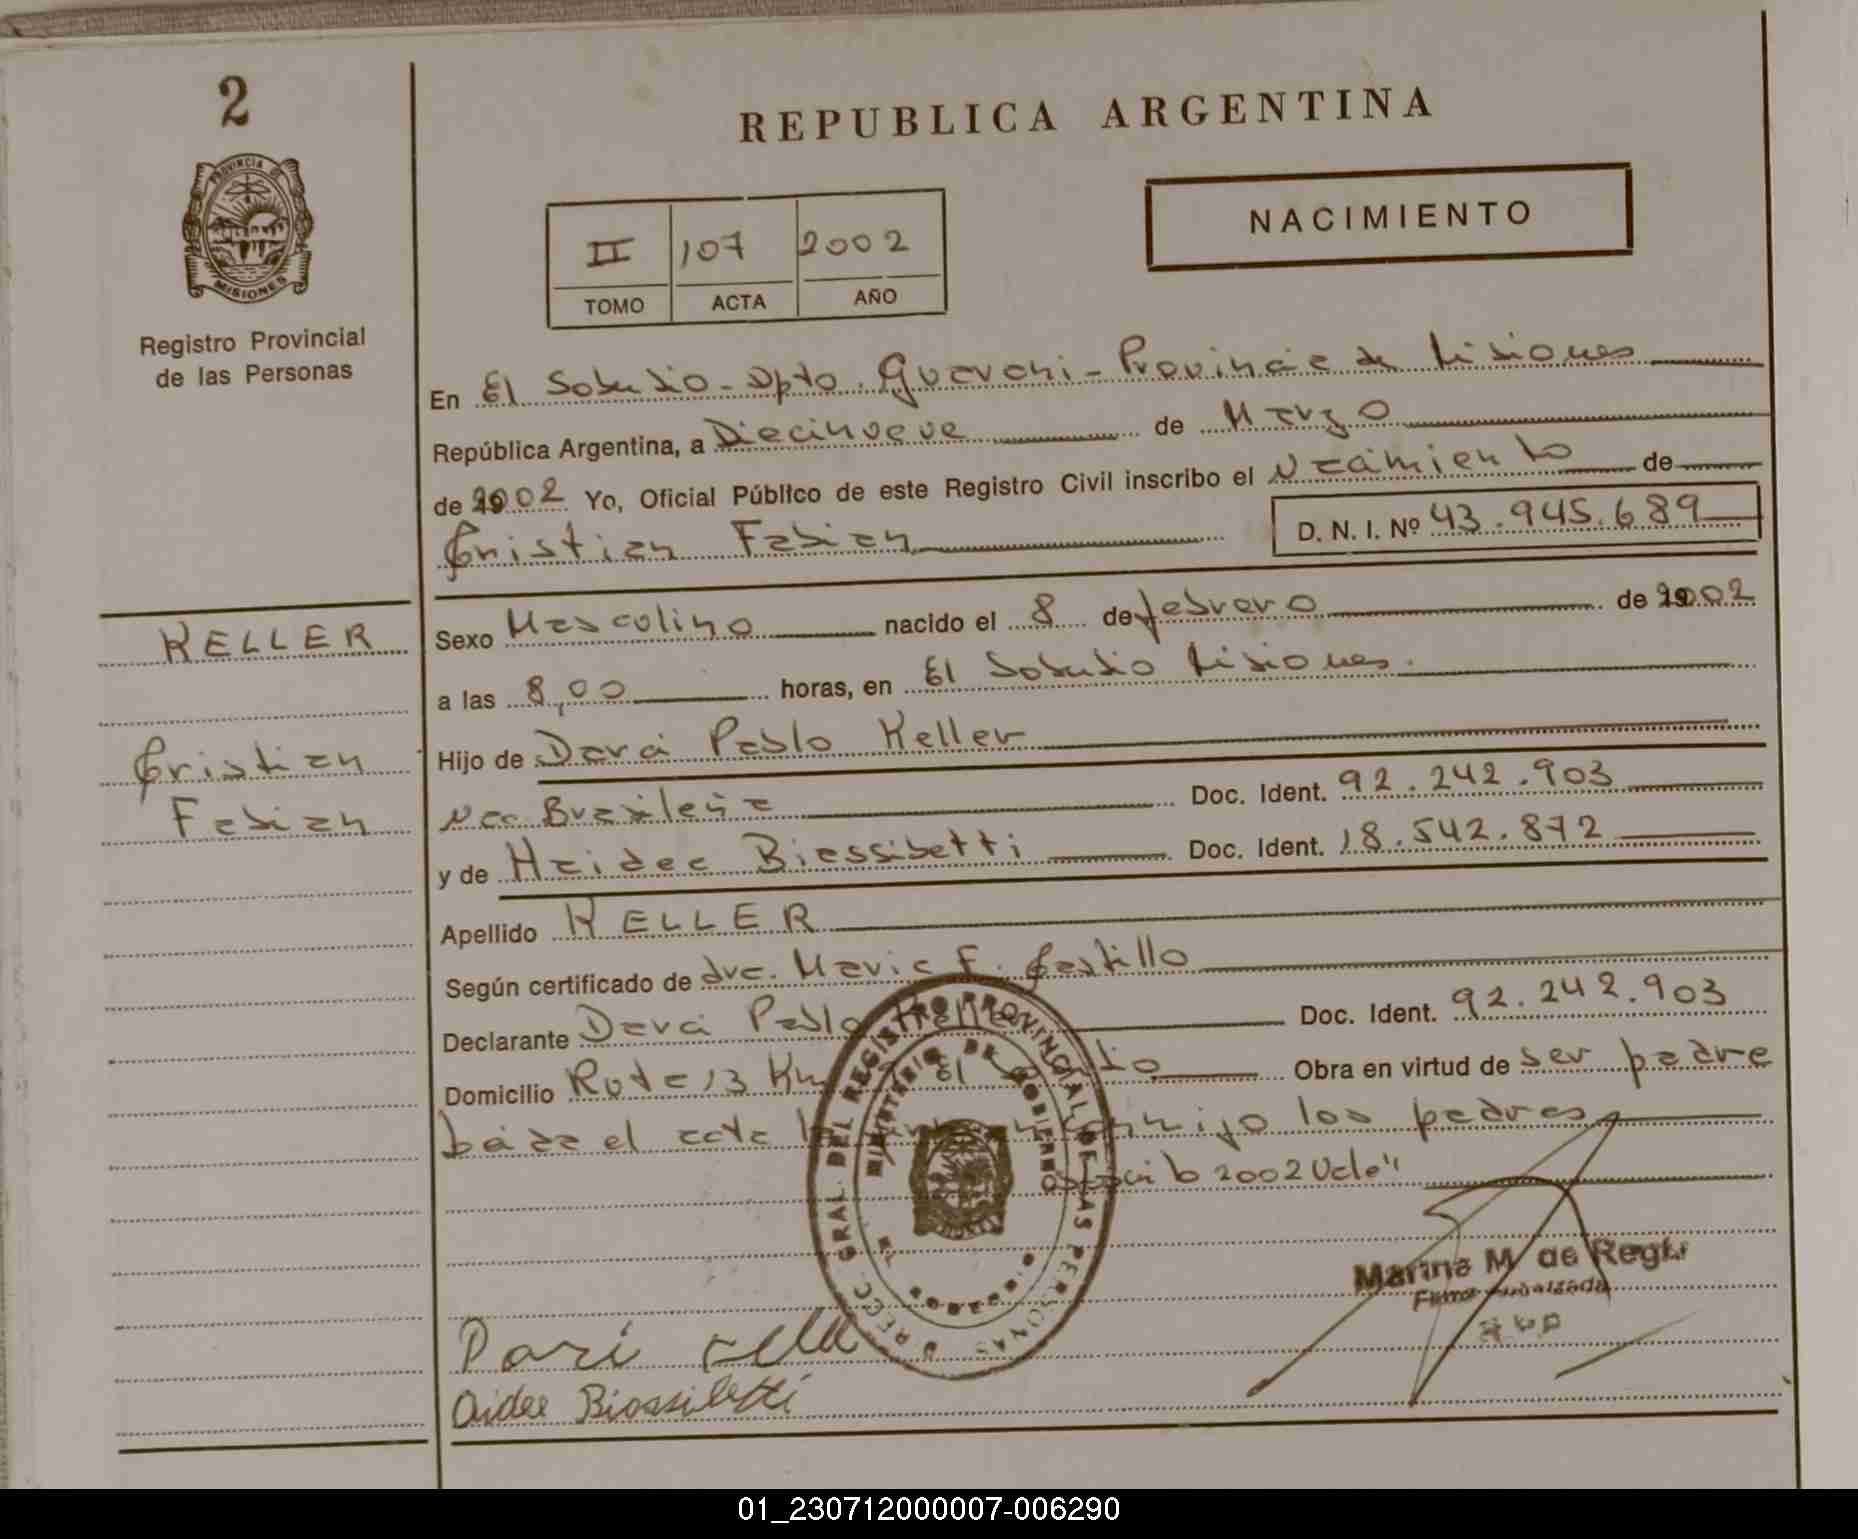 2
PROVINCIA DE
MISIONES
Registro Provincial
de las Personas
REPUBLICA ARGENTINA
NACIMIENTO
II 107 2002
TOMO ACTA AÑO
En El Soberbio - Dpto. Guarani - Provincia de Misiones
República Argentina, a Diecinueve de Marzo
de 2002 Yo, Oficial Público de este Registro Civil inscribo el Nacimiento de
Cristian Fabian D. N. I. Nº 43.945.689
KELLER
Cristian
Fabian
Sexo Masculino nacido el 8 de febrero de 2002
a las 8,00 horas, en El Soberbio Misiones.
Hijo de Darci Pablo Keller
Nac Brasileña Doc. Ident. 92.242.903
y de Haidee Biassibetti Doc. Ident. 18.542.872
Apellido KELLER
Según certificado de dra. Maria F. Castillo
Declarante Darci Pablo Keller Doc. Ident. 92.242.903
Domicilio Ruta 13 Km El Obra en virtud de ser padre
el acta los padres
2002 Vale"
DIRECC. GRAL. DEL REGISTRO PROVINCIAL DE LAS PERSONAS
MINISTERIO DE GOBIERNO
Marina M. de
Aidee Biassibetti
01_230712000007-006290